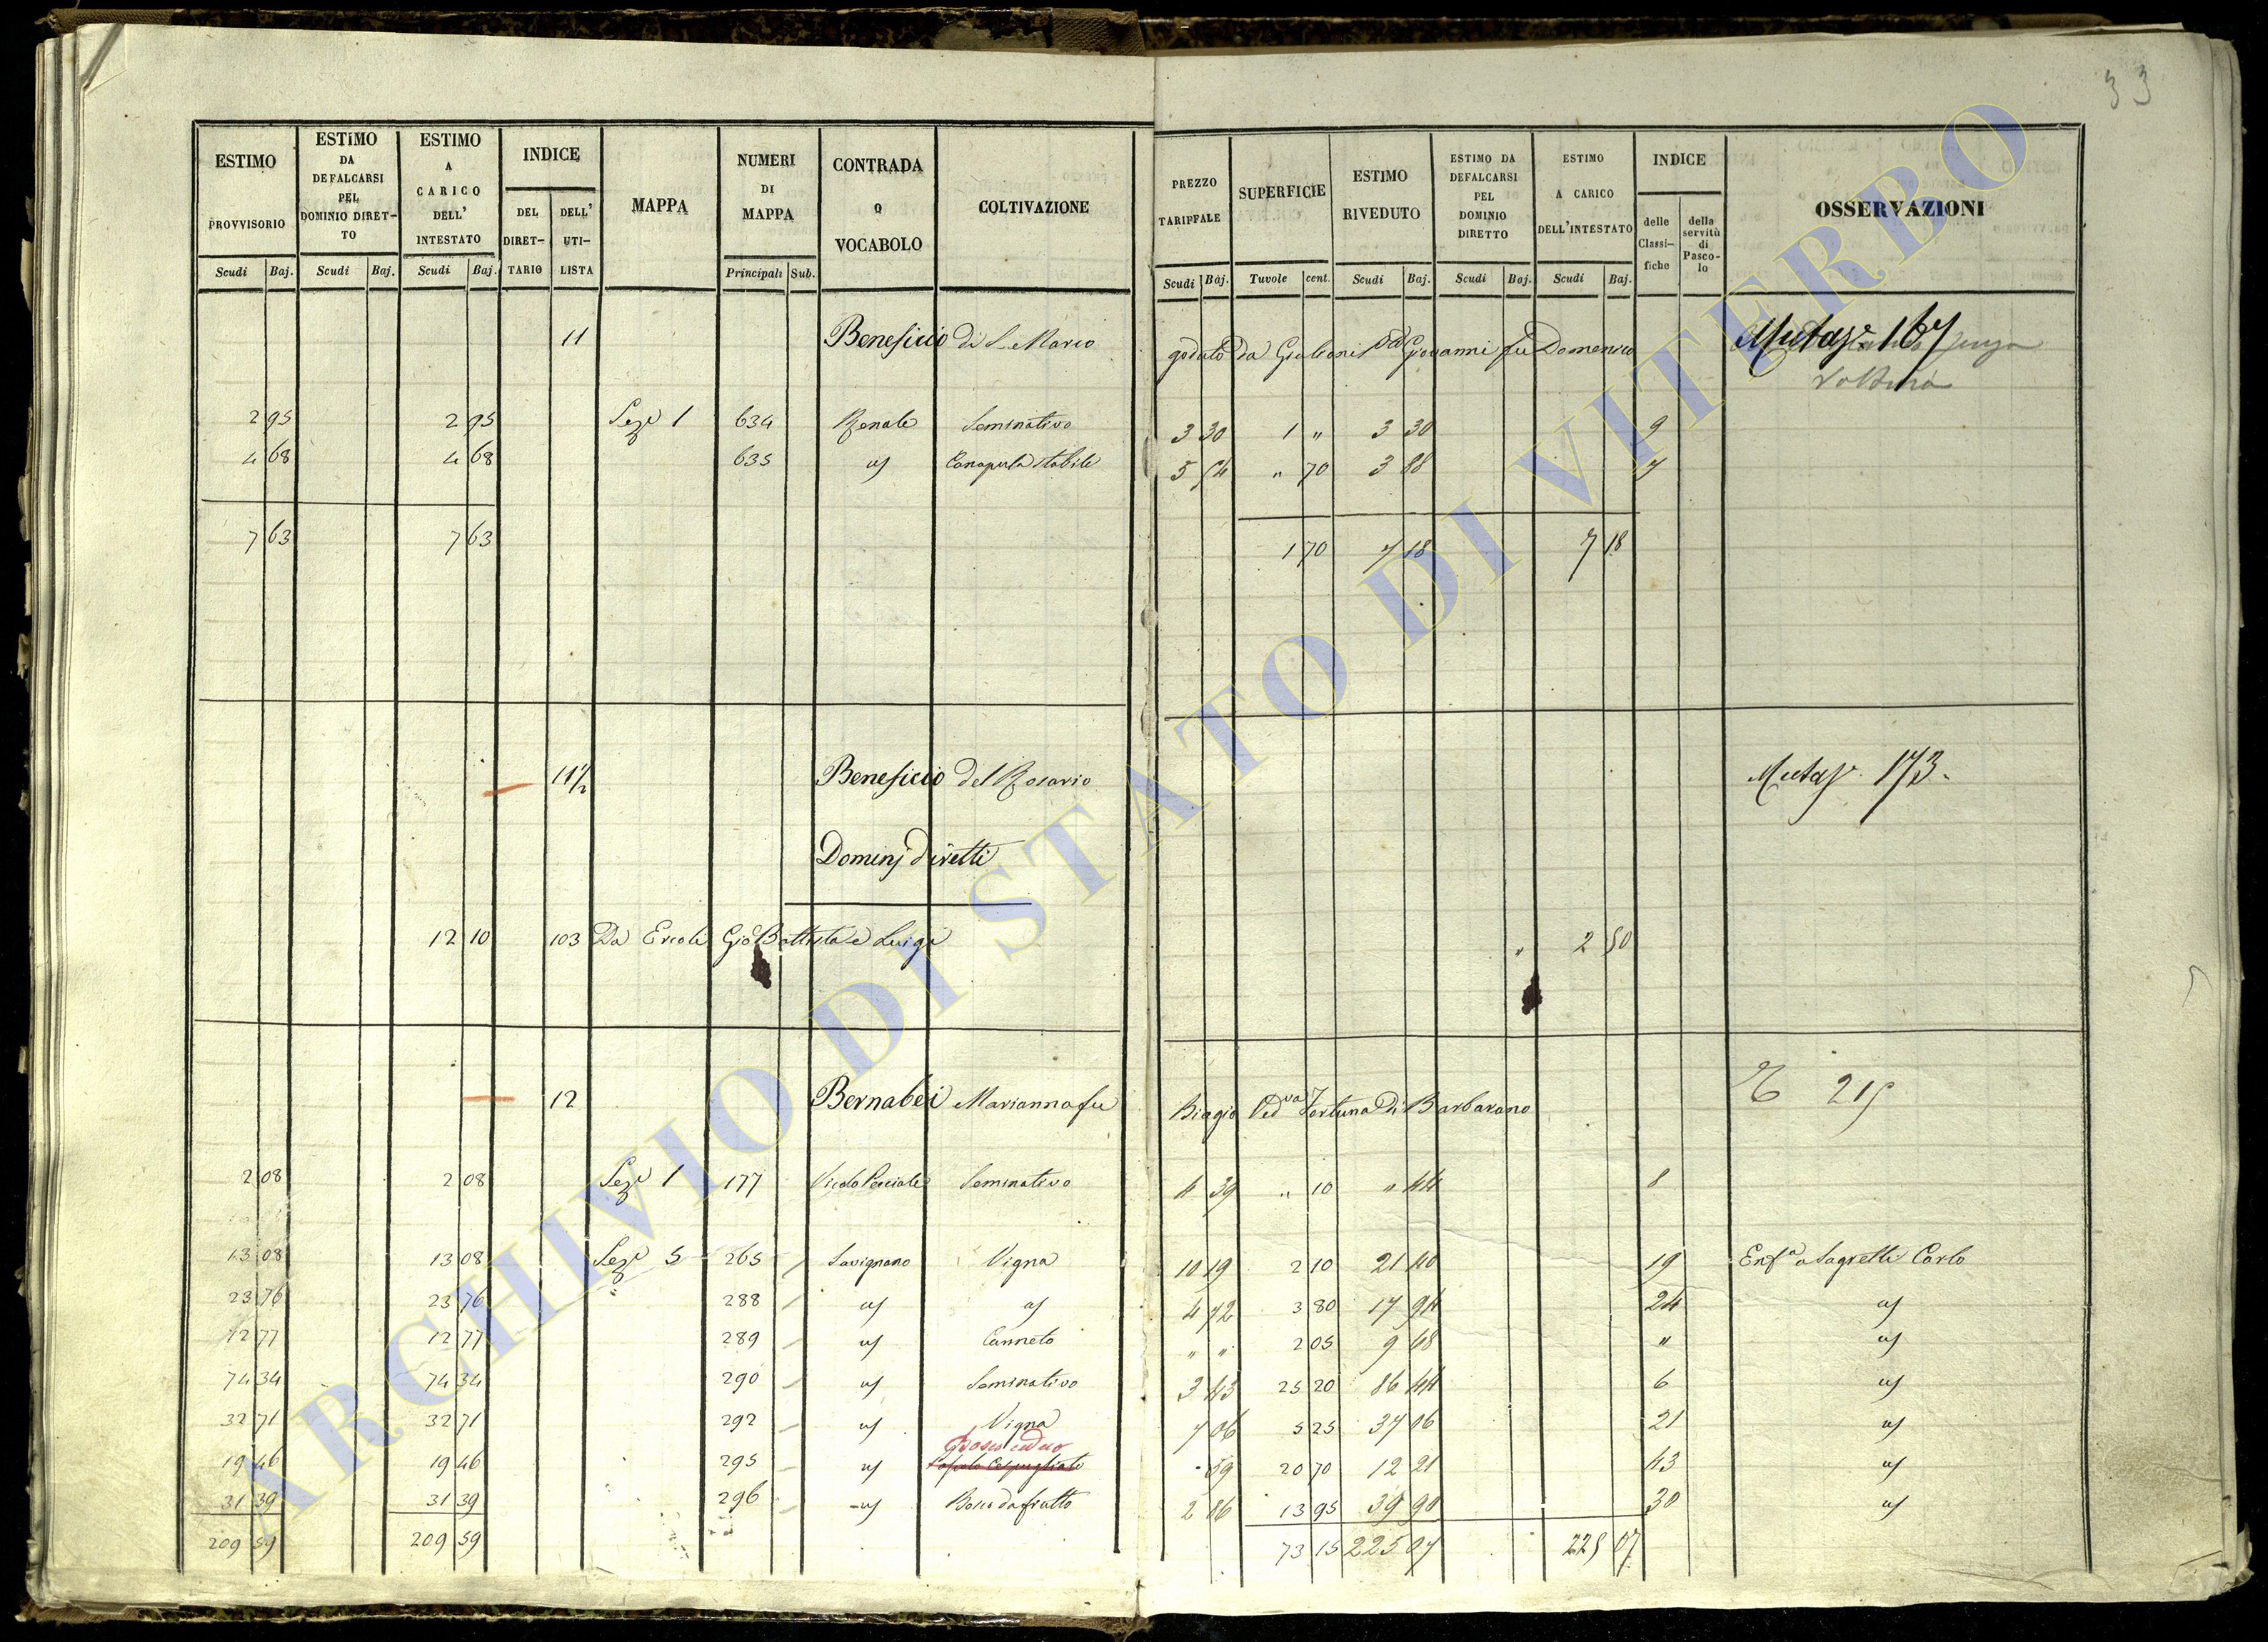 33
ESTIMO PROVVISORIO | ESTIMO DA DEFALCARSI PEL DOMINIO DIRET-TO | ESTIMO A CARICO DELL' INTESTATO | INDICE | MAPPA | NUMERI DI MAPPA | CONTRADA O VOCABOLO | COLTIVAZIONE | PREZZO TARIFFALE | SUPERFICIE | ESTIMO RIVEDUTO | ESTIMO DA DEFALCARSI PEL DOMINIO DIRETTO | ESTIMO A CARICO DELL'INTESTATO | INDICE | OSSERVAZIONI
DEL DIRET-TARIO | DELL' UTI-LISTA | delle Classi-fiche | della servitù di Pasco-lo
Scudi | Baj. | Scudi | Baj. | Scudi | Baj. | Principali | Sub. | Scudi | Baj. | Tavole | cent. | Scudi | Baj. | Scudi | Baj. | Scudi | Baj.
11 Beneficio di S. Marco goduto da Giovanni fu Domenico Mutaz.e 167
voltura
2 95 | 2 95 | Sez.e 1 | 634 | Renale | Seminativo | 3 30 | 1 " | 3 30 | 9
4 68 | 4 68 | 635 | us | Canapula stabile | 5 54 | " 70 | 3 88 | 7
7 63 | 7 63 | 1 70 | 7 18 | 7 18
11 1/2 Beneficio del Rosario Mutaz. 173.
Dominj diretti
12 10 | 103 | Da Ercoli Gio Battista e Luigi | " | 2 50
12 Bernabei Marianna fu Biagio Ved.va Fortuna di Barbarano 215
2 08 | 2 08 | Sez.e 1 | 177 | Vicolo | Seminativo | 4 39 | " 10 | " 44 | 8
13 08 | 13 08 | Sez.e 5 | 265 | Savignano | Vigna | 10 19 | 2 10 | 21 40 | 19 | Enf.a a Sagretti Carlo
23 76 | 23 76 | 288 | us | us | 4 72 | 3 80 | 17 94 | 24 | us
12 77 | 12 77 | 289 | us | Canneto | " " | 2 05 | 9 68 | " | us
74 34 | 74 34 | 290 | us | Seminativo | 3 43 | 25 20 | 86 44 | 6 | us
32 71 | 32 71 | 292 | us | Vigna | 7 06 | 5 25 | 37 06 | 21 | us
Bosco ceduo
19 46 | 19 46 | 295 | us | Pascolo Cespugliato | " 59 | 20 70 | 12 21 | 43 | us
31 39 | 31 39 | 296 | us | Bosco da frutto | 2 86 | 13 95 | 39 90 | 30 | us
209 59 | 209 59 | 73 15 | 225 07 | 225 07
ARCHIVIO DI STATO DI VITERBO